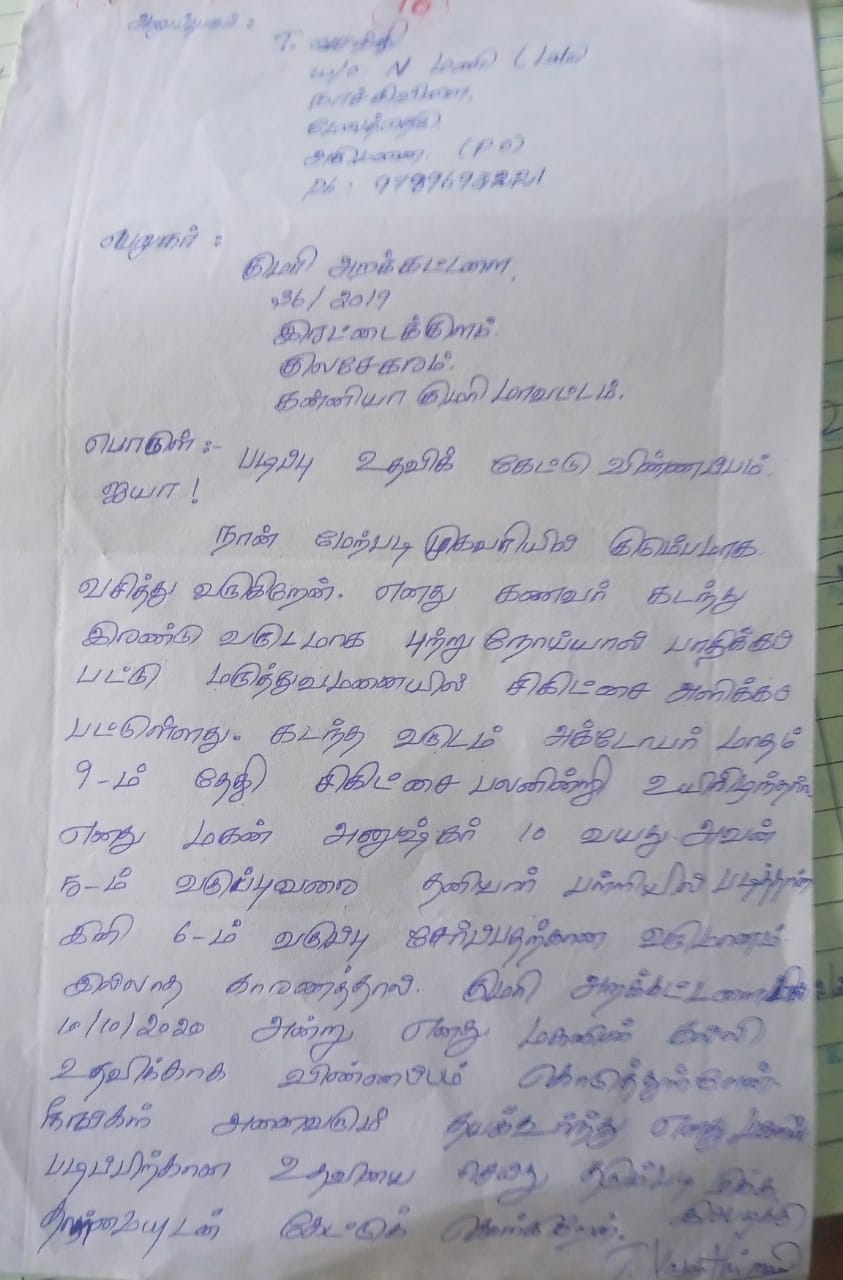 16
அனுப்புதல் :
T. வசந்தி
w/o N மணி (Late)
மேலத்தெரு
அருமனை (P O)
Ph : 9789698221
பெறுநர் :
குமரி அறக்கட்டளை,
36/2019
இரட்டைக்குளம்.
குலசேகரம்.
கன்னியாகுமரி மாவட்டம்.
பொருள் :- படிப்பு உதவிக் கேட்டு விண்ணப்பம்.
ஐயா !
நான் மேற்படி முகவரியில் குடும்பமாக
வசித்து வருகிறேன். எனது கணவர் கடந்து
இரண்டு வருடமாக புற்று நோய்யால் பாதிக்கப்
பட்டு மருத்துவமனையில் சிகிட்சை அளிக்கப்
பட்டுள்ளது. கடந்த வருடம் அக்டோபர் மாதம்
9-ம் தேதி சிகிட்சை பலனின்றி உயிரிழந்தார்.
எனது மகன் அனுஷ்கர் 10 வயது அவன்
5-ம் வகுப்புவரை தனியார் பள்ளியில் படித்தான்
இனி 6-ம் வகுப்பு சேர்ப்பதற்கான வருமானம்
இல்லாத காரணத்தால். குமரி அறக்கட்டளையில்
10/10/2020 அன்று எனது மகனின் கல்வி
உதவிக்காக விண்ணப்பம் கொடுத்துள்ளேன்.
நீங்கள் அனைவரும் தயக்கூர்ந்து எனது மகன்
படிப்பிற்கான உதவியை செய்து தரும்படி மிக்க
தாழ்மையுடன் கேட்டுக் கொள்கிறேன். இப்படிக்கு
T. Vasanthi